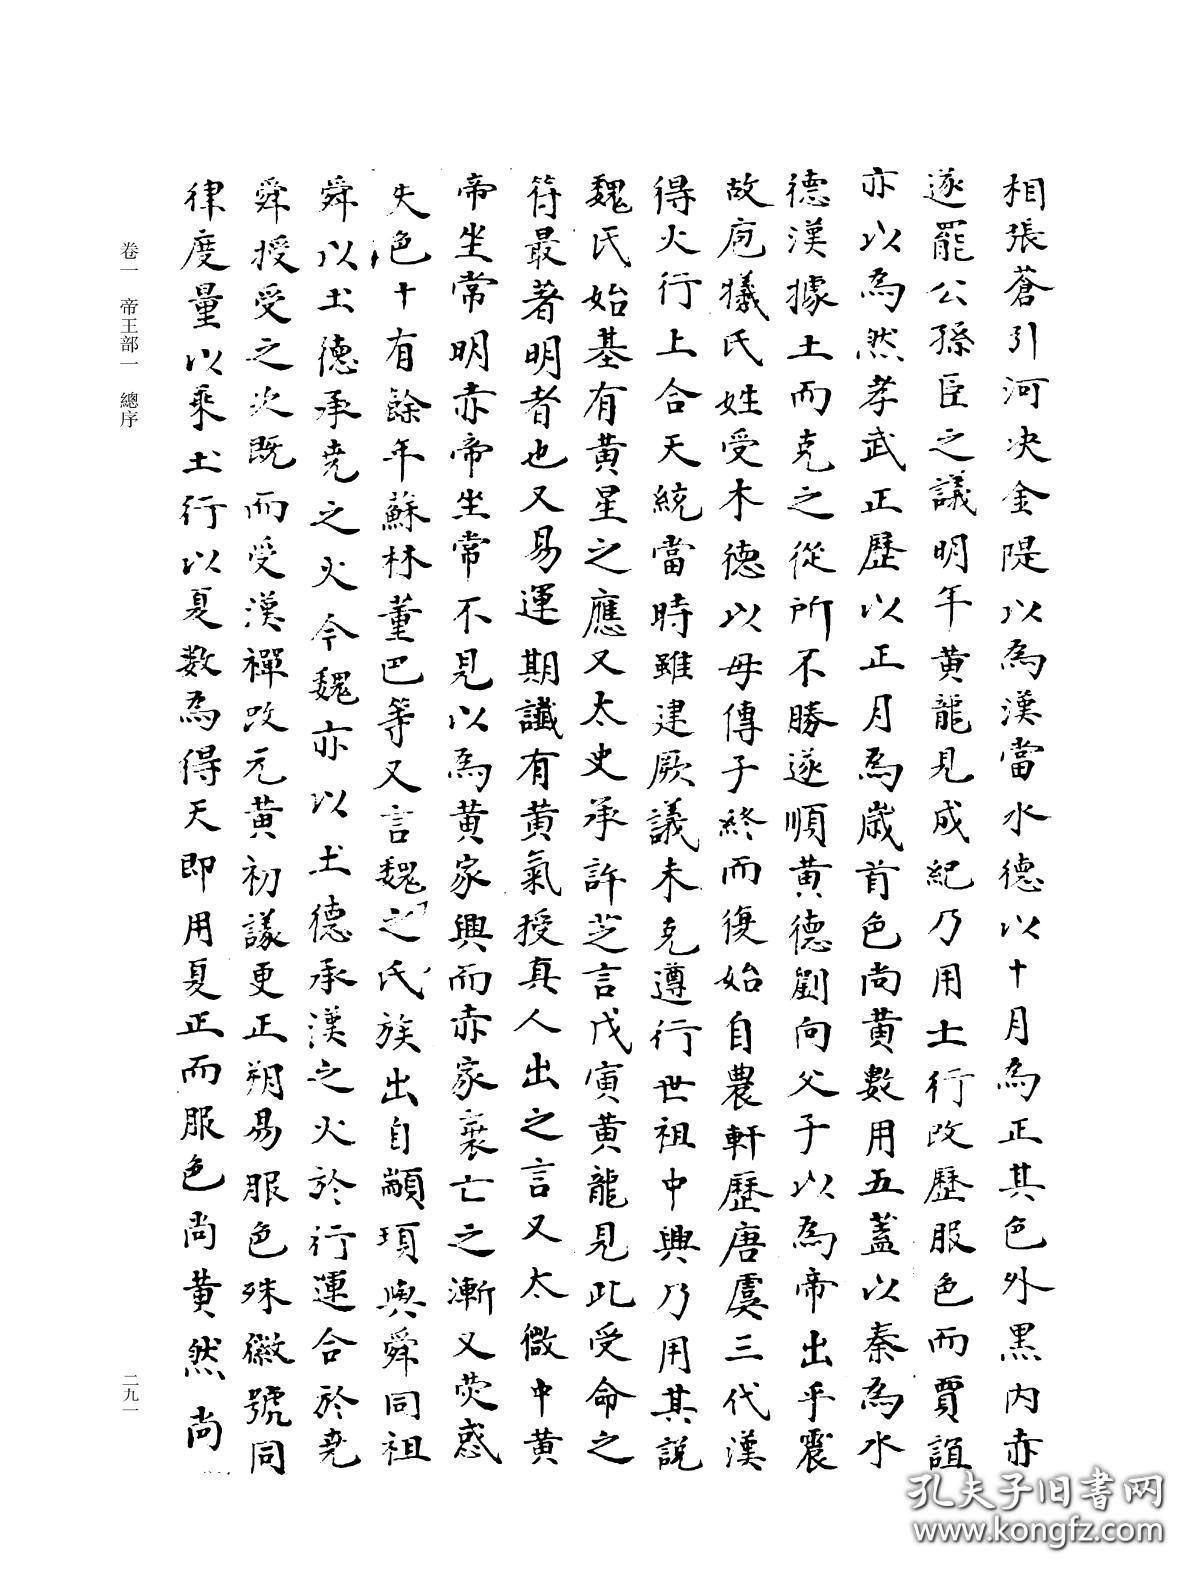 相張蒼引河决金隄以為漢當水德以十月為正其色外黒内赤
遂罷公孫臣之議明年黄龍見成紀乃用土行改歷服色而賈誼
亦以為然孝武正歷以正月為歲首色尚黄數用五蓋以秦為水
德漢據土而克之從所不勝遂順黄德劉向父子以為帝出乎震
故庖犧氏姓受木德以母傳子終而復始自農軒歷唐虞三代漢
得火行上合天統當時雖建厥議未克遵行世祖中興乃用其説
魏氏始基有黄星之應又太史丞許芝言戊寅黄龍見此受命之
符最著明者也又易運期讖有黄氣授真人出之言又太微中黄
帝坐常明赤帝坐常不見以為黄家興而赤家衰亡之漸又熒惑
失色十有餘年蘇林董巴等又言魏之氏族出自顓頊與舜同祖
舜以土德承堯之火今魏亦以土德承漢之火於行運合於堯
舜授受之次既而受漢禪改元黄初議更正朔易服色殊徽號同
律度量以乘土行以夏数為得天即用夏正而服色尚黄然尚
卷一 帝王部一 總序
二九一
孔夫子旧书网
www.kongfz.com